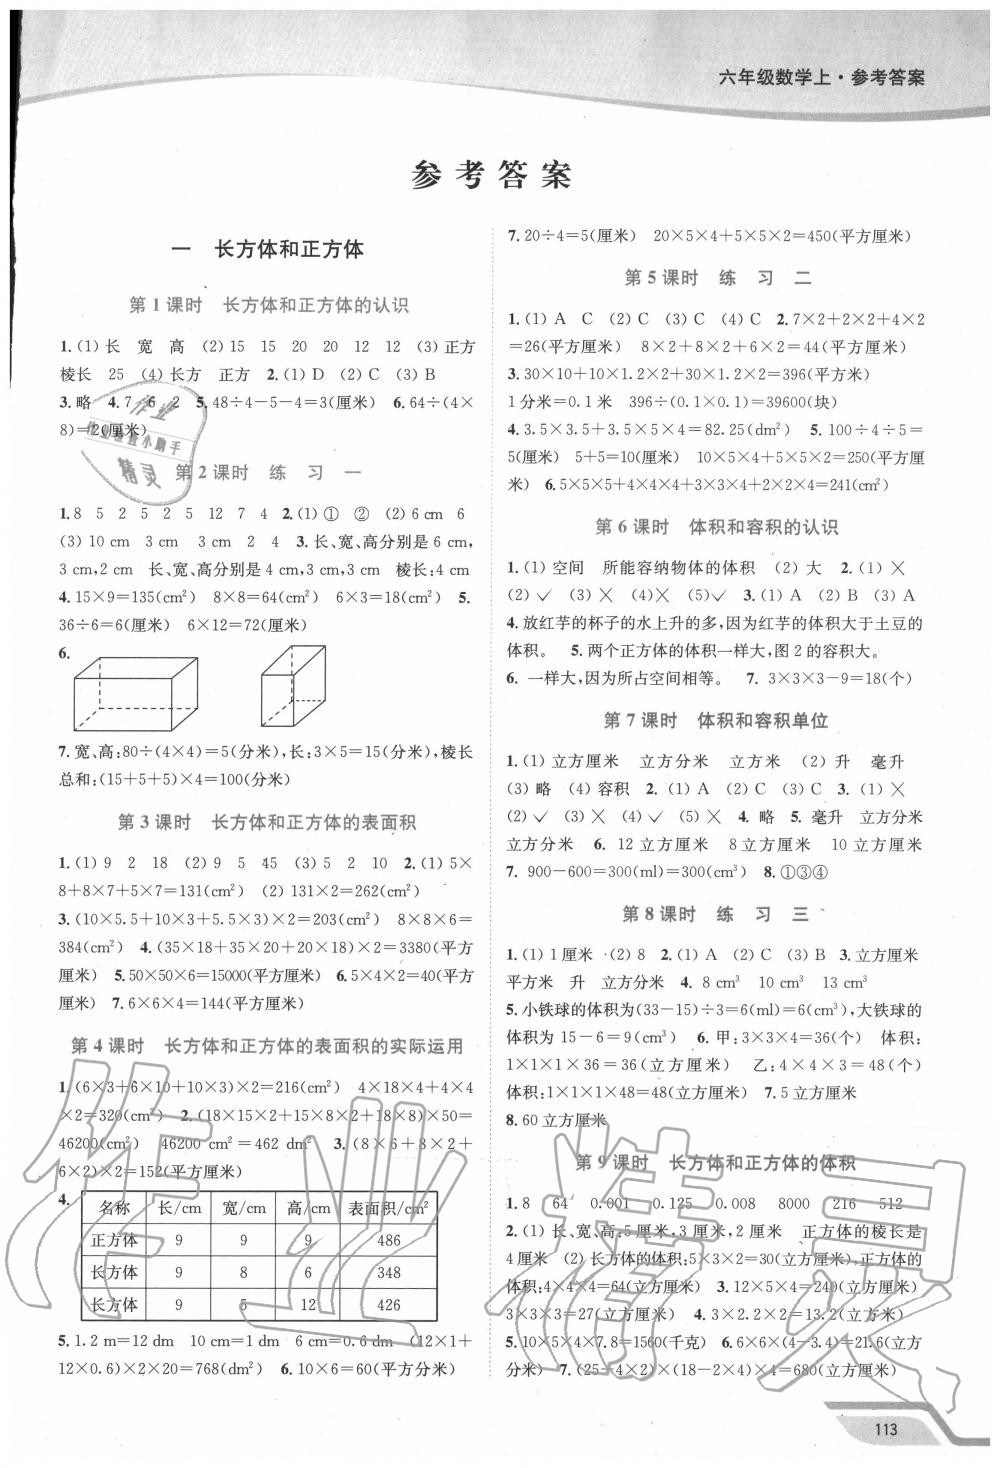 六年级数学上·参考答案
参考答案
一 长方体和正方体
第1课时 长方体和正方体的认识
1.(1)长 宽 高 (2)15 15 20 20 12 12 (3)正方
棱长 25 (4)长方 正方 2.(1)D (2)C (3)B
3.略 4.7 6 2 5.48÷4-5-4=3(厘米) 6.64÷(4×
8)=2(厘米)
第2课时 练 习 一
1.8 5 2 5 2 5 12 7 4 2.(1)① ② (2)6 cm 6
(3)10 cm 3 cm 3 cm 2 4 3.长、宽、高分别是6 cm,
3 cm,2 cm 长、宽、高分别是4 cm,3 cm,3 cm 棱长:4 cm
4.15×9=135(cm²) 8×8=64(cm²) 6×3=18(cm²) 5.
36÷6=6(厘米) 6×12=72(厘米)
6.
7.宽、高:80÷(4×4)=5(分米),长:3×5=15(分米),棱长
总和:(15+5+5)×4=100(分米)
第3课时 长方体和正方体的表面积
1.(1)9 2 18 (2)9 5 45 (3)5 2 10 2.(1)5×
8+8×7+5×7=131(cm²) (2)131×2=262(cm²)
3.(10×5.5+10×3+5.5×3)×2=203(cm²) 8×8×6=
384(cm²) 4.(35×18+35×20+20×18)×2=3380(平方
厘米) 5.50×50×6=15000(平方厘米) 6.5×4×2=40(平方
厘米) 7.6×6×4=144(平方厘米)
第4课时 长方体和正方体的表面积的实际运用
1.(6×3+6×10+10×3)×2=216(cm²) 4×18×4+4×4
×2=320(cm²) 2.(18×15×2+15×8×2+18×8)×50=
46200(cm²) 46200 cm²=462 dm² 3.(8×6+8×2+
6×2)×2=152(平方厘米)
4.
名称 长/cm 宽/cm 高/cm 表面积/cm²
正方体 9 9 9 486
长方体 9 8 6 348
长方体 9 5 12 426
5.1.2 m=12 dm 10 cm=1 dm 6 cm=0.6 dm (12×1+
12×0.6)×2×20=768(dm²) 6.10×6=60(平方分米)
7.20÷4=5(厘米) 20×5×4+5×5×2=450(平方厘米)
第5课时 练 习 二
1.(1)A C (2)C (3)C (4)C 2.7×2+2×2+4×2
=26(平方厘米) 8×2+2×8+6×2=44(平方厘米)
3.30×10+10×1.2×2+30×1.2×2=396(平方米)
1分米=0.1米 396÷(0.1×0.1)=39600(块)
4.3.5×3.5+3.5×5×4=82.25(dm²) 5.100÷4÷5=
5(厘米) 5+5=10(厘米) 10×5×4+5×5×2=250(平方厘
米) 6.5×5×5+4×4×4+3×3×4+2×2×4=241(cm²)
第6课时 体积和容积的认识
1.(1)空间 所能容纳物体的体积 (2)大 2.(1)×
(2)✓ (3)× (4)× (5)✓ 3.(1)A (2)B (3)A
4.放红芋的杯子的水上升的多,因为红芋的体积大于土豆的
体积。 5.两个正方体的体积一样大,图2的容积大。
6. 一样大,因为所占空间相等。 7. 3×3×3-9=18(个)
第7课时 体积和容积单位
1.(1)立方厘米 立方分米 立方米 (2)升 毫升
(3)略 (4)容积 2.(1)A (2)C (3)C 3.(1)×
(2)✓ (3)× (4)✓ (5)× 4.略 5.毫升 立方分米
立方分米 6. 12立方厘米 8立方厘米 10立方厘米
7. 900-600=300(ml)=300(cm³) 8.①③④
第8课时 练 习 三
1.(1)1厘米 (2)8 2.(1)A (2)C (3)B 3.立方厘米
平方米 升 立方分米 4. 8 cm³ 10 cm³ 13 cm³
5.小铁球的体积为(33-15)÷3=6(ml)=6(cm³),大铁球的
体积为15-6=9(cm³) 6.甲:3×3×4=36(个) 体积:
1×1×1×36=36(立方厘米) 乙:4×4×3=48(个)
体积:1×1×1×48=48(立方厘米) 7.5立方厘米
8.60立方厘米
第9课时 长方体和正方体的体积
1.8 64 0.001 0.125 0.008 8000 216 512
2.(1)长、宽、高:5厘米,3厘米,2厘米 正方体的棱长是
4厘米 (2)长方体的体积:5×3×2=30(立方厘米),正方体的
体积:4×4×4=64(立方厘米) 3.12×5×4=240(立方分米)
3×3×3=27(立方厘米) 4.3×2.2×2=13.2(立方米)
5.10×5×4×7.8=1560(千克) 6.6×6×(4-3.4)=21.6(立方
分米) 7.(25-4×2)×(18-2×4)×4=680(立方厘米)
113
作业
作业检查小助手
精灵
作业精灵